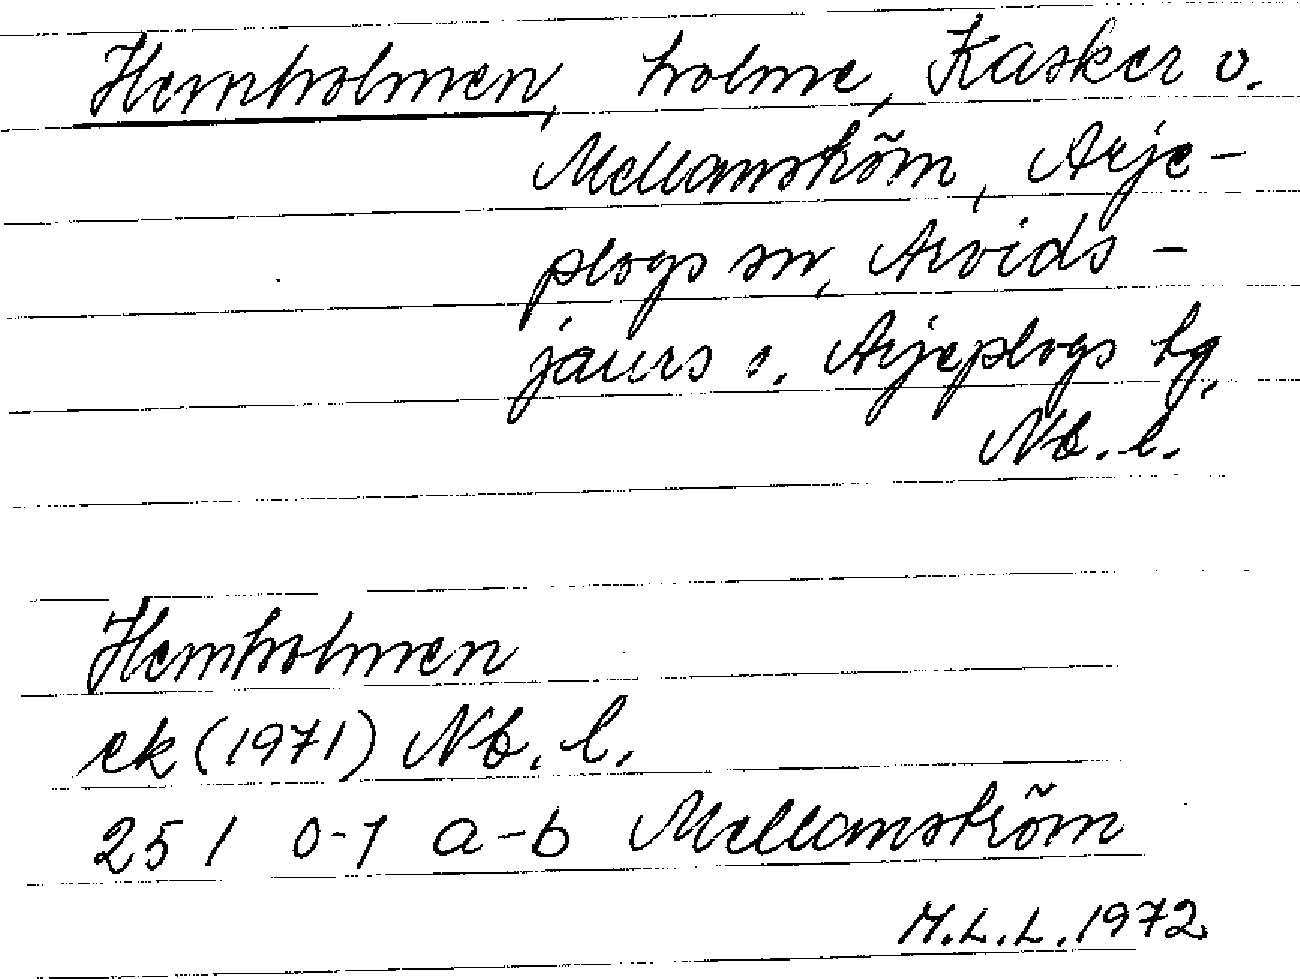 Hemholmen, holme, Kasker o.
Mellanström, Arje-
plogs sn, Arvids-
jaurs o. Arjeplogs tg,
Nb. l.
Hemholmen
ek (1971) Nb. l.
25 I 0-1 a-b Mellanström
M.L.L. 1972